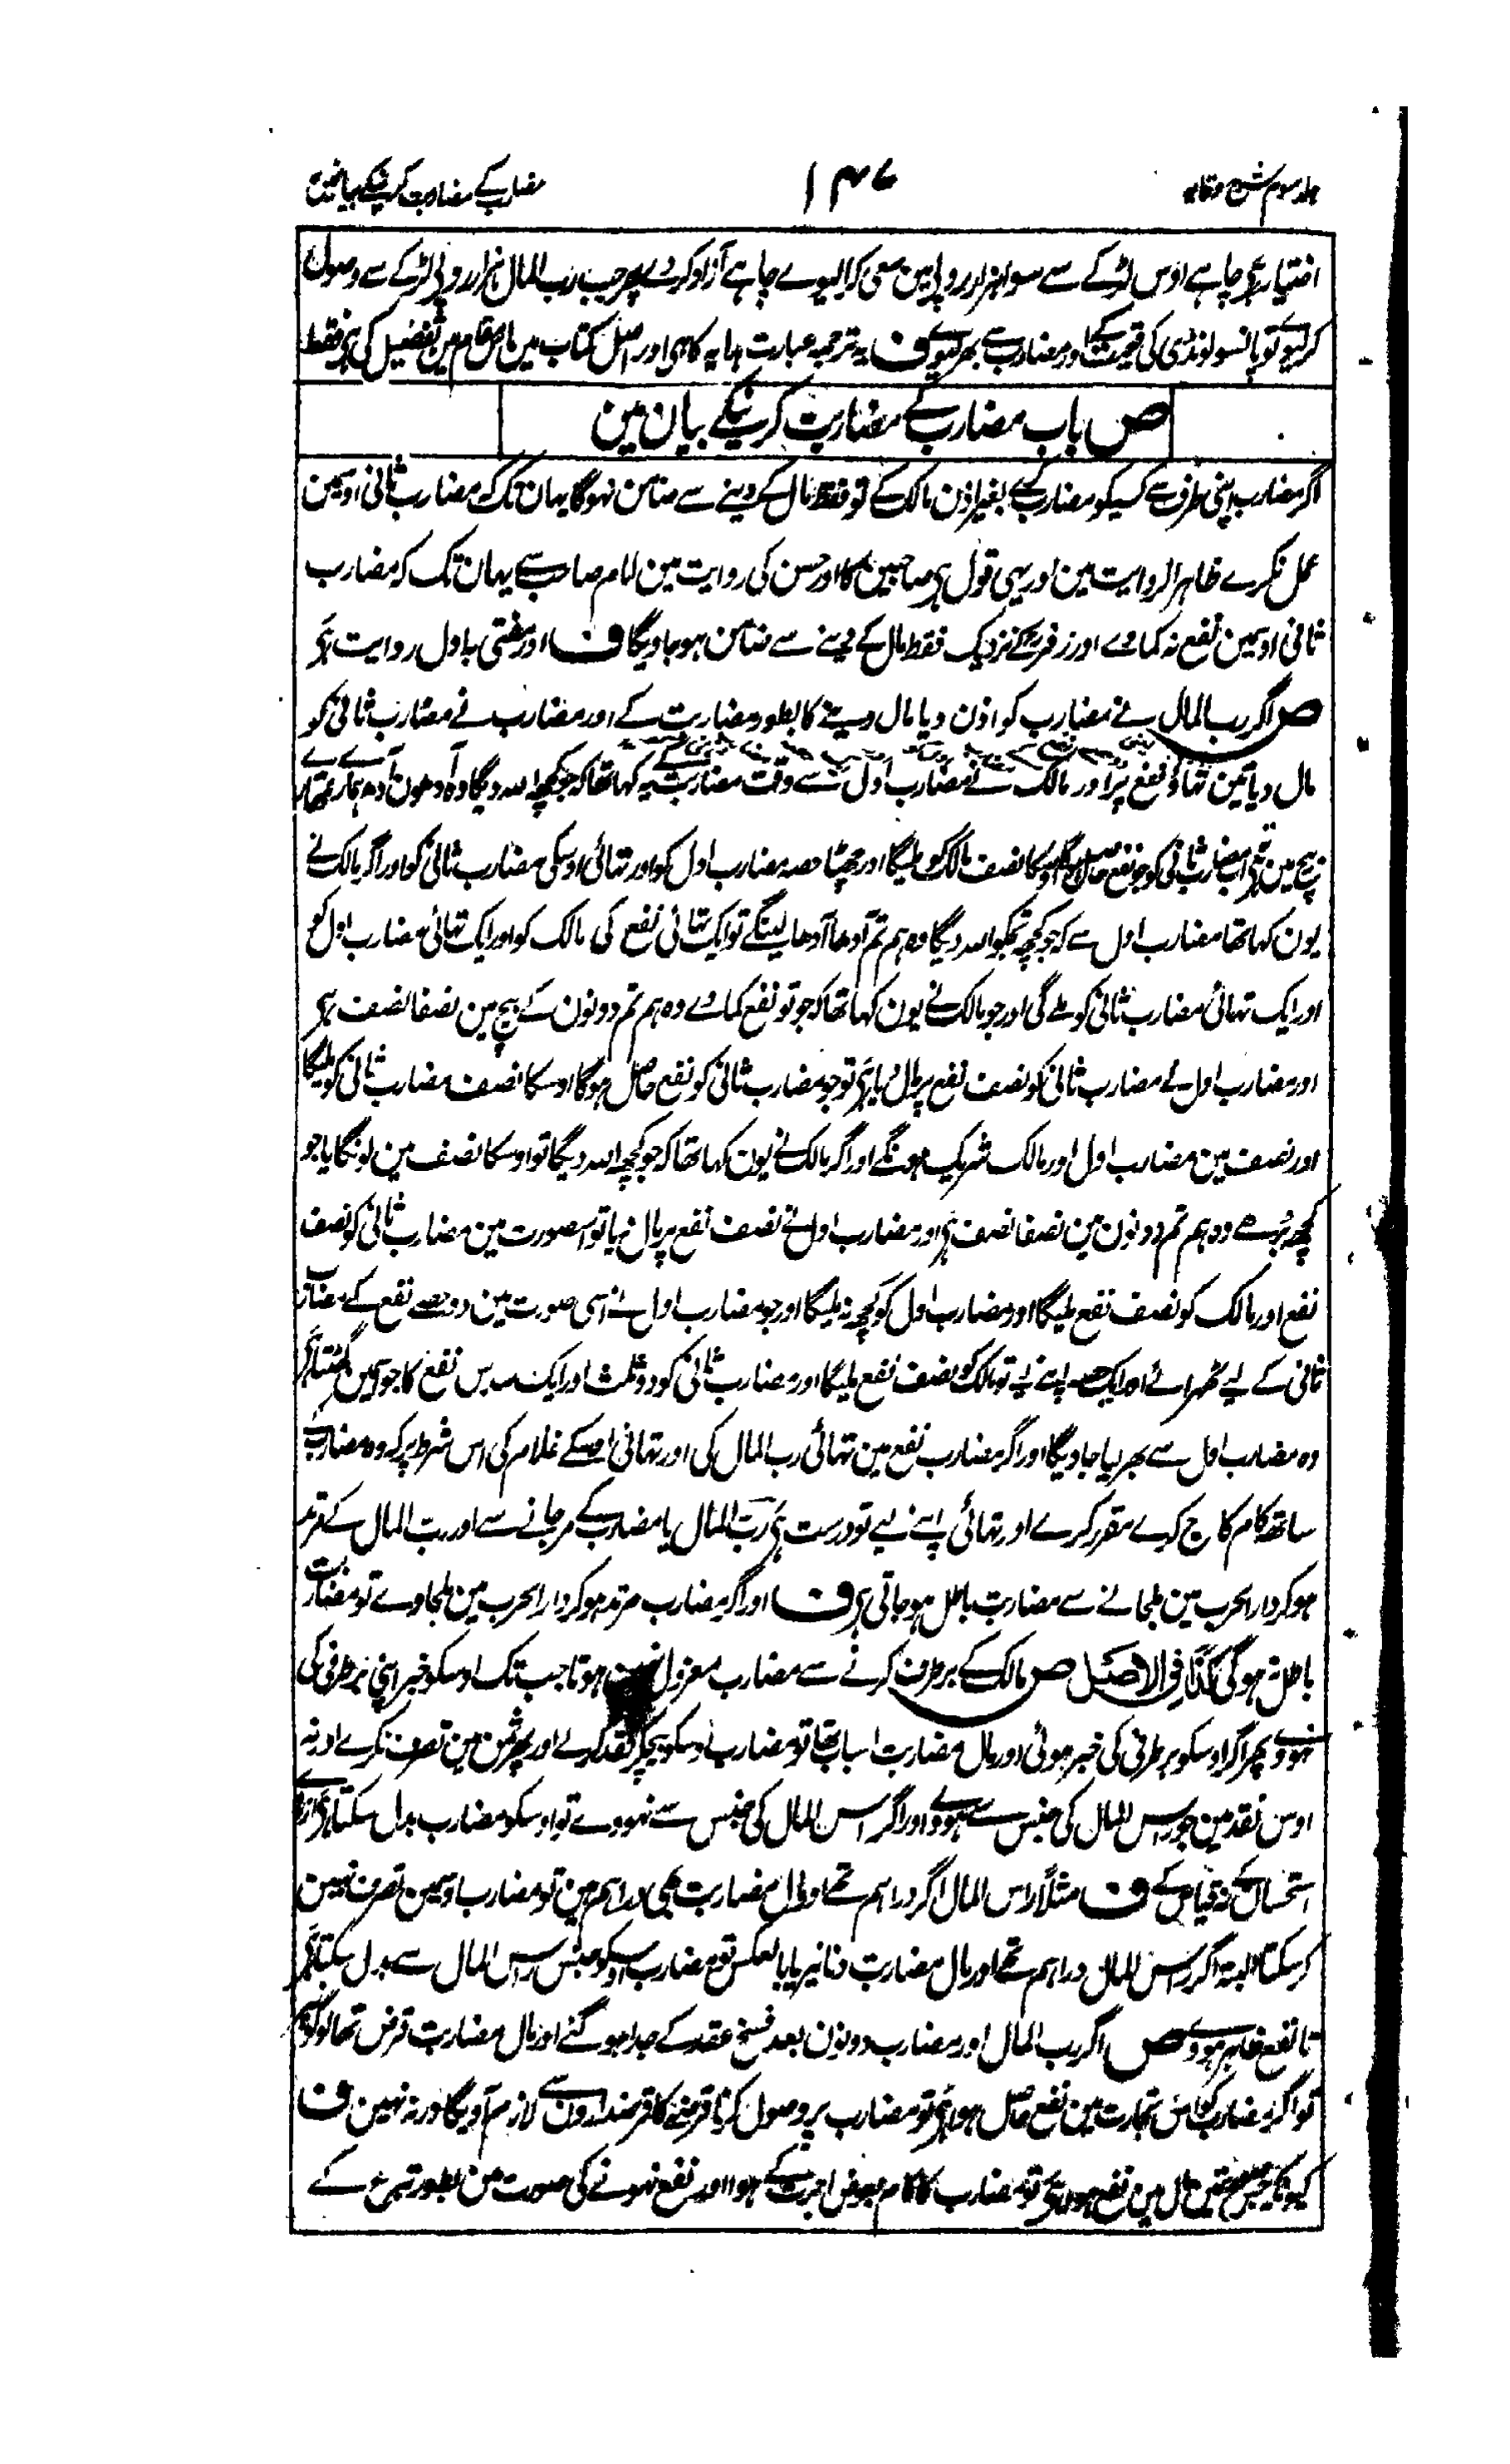 جلد سوم شرح وقایہ
۱۴۷
مضارب کے مضاربت کرنیکے بیانمین
اختیار ہی چاہے اوس لڑکے سے سوا ہزار روپیہ مین سعی کرا لیوے چاہے آزاد کر دے پھر جب رب المال ہزار روپیہ لڑکے سے وصول
کر لیوے تو پانسو لونڈی کی قیمت کے اور مضارب سے بھر لیوے ف یہ ترجمہ عبارت ہدایہ کا ہی اور اصل کتاب مین اس مقام مین تفصیل کی ہی فقط
ص باب مضارب کے مضاربت کرنیکے بیان مین
اگر مضارب اپنی طرف سے کسیکو مضارب کرے بغیر اذن مالک کے تو فقط مال کے دینے سے ضامن نہوگا یہان تک کہ مضارب ثانی اوسمین
عمل نکرے ظاہر الروایت مین اور یہی قول ہی صاحبین کا اور حسن کی روایت مین امام صاحب سے یہان تک کہ مضارب
ثانی اوسمین نفع نہ کماوے اور زفر کے نزدیک فقط مال کے دینے سے ضامن ہو جاویگا ف اور مفتی بہ اول روایت ہی
ص اگر رب المال نے مضارب کو اذن دیا مال دینے کا بطور مضاربت کے اور مضارب نے مضارب ثانی کو
مال دیا تین تہائی نفع پر اور مالک نے مضارب اول سے وقت مضاربت یہ کہا تھا کہ جو کچھ اللہ دیگا وہ آدھون آدھ ہمارے تمھارے
بیچ مین ہی اب مضارب ثانی کو جو نفع حاصل ہوگا اوسکا نصف مالک کو ملیگا اور چھٹا حصہ مضارب اول کو اور تہائی اوسکی مضارب ثانی کو اور اگر مالک نے
یون کہا تھا مضارب اول سے کہ جو کچھ تجکو اللہ دیگا وہ ہم تم آدھا آدھا لینگے تو ایک تہائی نفع کی مالک کو اور ایک تہائی مضارب اول کو
اور ایک تہائی مضارب ثانی کو ملے گی اور جو مالک نے یون کہا تھا کہ جو تو نفع کماوے وہ ہم تم دونون کے بیچ مین نصفا نصف ہی
اور مضارب اول نے مضارب ثانی کو نصف نفع پر مال دیا ہی تو جو مضارب ثانی کو نفع حاصل ہوگا اوسکا نصف مضارب ثانی کو ملیگا
اور نصف مین مضارب اول اور مالک شریک ہونگے اور اگر مالک نے یون کہا تھا کہ جو کچھ اللہ دیگا تو اوسکا نصف مین لونگا یا جو
کچھ بڑھے وہ ہم تم دونون مین نصفا نصف ہی اور مضارب اول نے نصف نفع پر مال دیا تو اس صورت مین مضارب ثانی کو نصف
نفع اور مالک کو نصف نفع ملیگا اور مضارب اول کو کچھ نہ ملیگا اور جو مضارب اول نے اسی صورت مین دو حصے نفع کے مضارب
ثانی کے لیے ٹھہرائے اور ایک حصہ اپنے لیے تو مالک کو نصف نفع ملیگا اور مضارب ثانی کو دو ثلث اور ایک سدس نفع کا جو اسمین گھٹتا ہی
وہ مضارب اول سے بھر لیا جاویگا اور اگر مضارب نفع مین تہائی رب المال کی اور تہائی اوسکے غلام کی اس شرط پر کہ وہ مضارب کے
ساتھ کام کاج کرے مقرر کرے اور تہائی اپنے لیے تو درست ہی رب المال یا مضارب کے مرجانے سے اور رب المال کے مرتد
ہو کر دار الحرب مین ملجانے سے مضاربت باطل ہو جاتی ہی ف اور اگر مضارب مرتد ہو کر دار الحرب مین ملجاوے تو مضاربت
باطل نہوگی کذا فی الاصل ص مالک کے برطرف کرنے سے مضارب معزول نہین ہوتا جب تک اوسکو خبر اپنی برطرفی کی
نہووے پھر اگر اوسکو برطرفی کی خبر ہوئی اور مال مضاربت اسباب تھا تو مضارب اوسکو بیچکر نقد کرلے اور پھر ثمن مین تصرف نکرے اور نہ
اوس نقد مین جو راس المال کی جنس سے ہووے اور اگر راس المال کی جنس سے نہووے تو اوسکو مضارب بدل سکتا ہی از روے
استحسان کے نہ قیاس کے ف مثلاً راس المال اگر دراہم تھے اور مال مضاربت بھی دراہم ہین تو مضارب اوسمین تصرف نہین
کر سکتا البتہ اگر راس المال دراہم تھے اور مال مضاربت دنانیر یا بالعکس تو مضارب اوسکو جنس راس المال سے بدل سکتا ہی
تا نفع ظاہر ہووے ص اگر رب المال اور مضارب دونون بعد فسخ عقد کے جدا ہو گئے اور مال مضاربت قرض تھا لوگونپر
تو اگر مضارب کو اس تجارت مین نفع حاصل ہوا ہی تو مضارب پر وصول کرنا قرضے کا قرضدارون سے لازم آویگا ورنہ نہین ف
کیونکہ جس صورت مین مال مین نفع ہوا ہی تو مضارب کا کام بعوض اجرت کے ہوا اور نفع نہونے کی صورت مین بطور تبرع کے